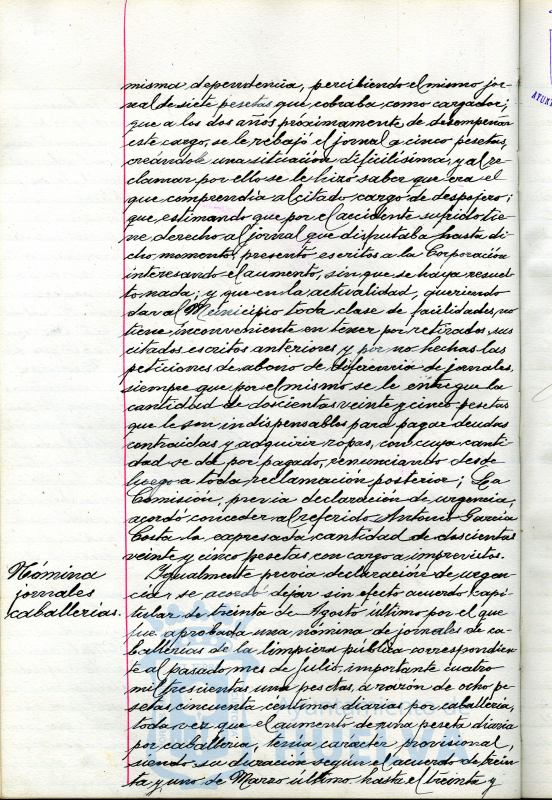 misma dependencia, percibiendo el mismo jor-
nal de siete pesetas que cobraba como cargador;
que a los dos años próximamente de desempeñar
este cargo, se le rebajó el jornal a cinco pesetas,
creándole una situación dificilísima, y al re-
clamar por ello se le hizo saber que era el
que comprendía al citado cargo de despojero;
que estimando que por el accidente sufrido tie-
ne derecho al jornal que disfrutaba hasta di-
cho momento, presentó escritos a la Corporación
interesando el aumento, sin que se haya resuel-
to nada; y que en la actualidad, queriendo
dar al Municipio toda clase de facilidades, no
tiene inconveniente en tener por retirados sus
citados escritos anteriores y por no hechas las
peticiones de abono de diferencia de jornales,
siempre que por el mismo se le entregue la
cantidad de doscientas veinte y cinco pesetas
que le son indispensables para pagar deudas
contraidas y adquirir ropas, con cuya canti-
dad se da por pagado, renunciando desde
luego a toda reclamación posterior; La
Comisión, previa declaración de urgencia,
acordó conceder al referido Antonio García
Costa la expresada cantidad de doscientas
veinte y cinco pesetas con cargo a imprevistos.
Nómina
jornales
caballerías.
Igualmente previa declaración de urgen-
cia, se acordó dejar sin efecto acuerdo capi-
tular de treinta de Agosto último por el que
fue aprobada una nómina de jornales de ca-
ballerías de la limpieza pública correspondien-
te al pasado mes de Julio, importante cuatro
mil trescientas una pesetas, a razón de ocho pe-
setas, cincuenta céntimos diarios por caballería,
toda vez que el aumento de una peseta diaria
por caballería, tenía carácter provisional,
siendo su duración según el acuerdo de trein-
ta y uno de Marzo último hasta el treinta y
HUELVA